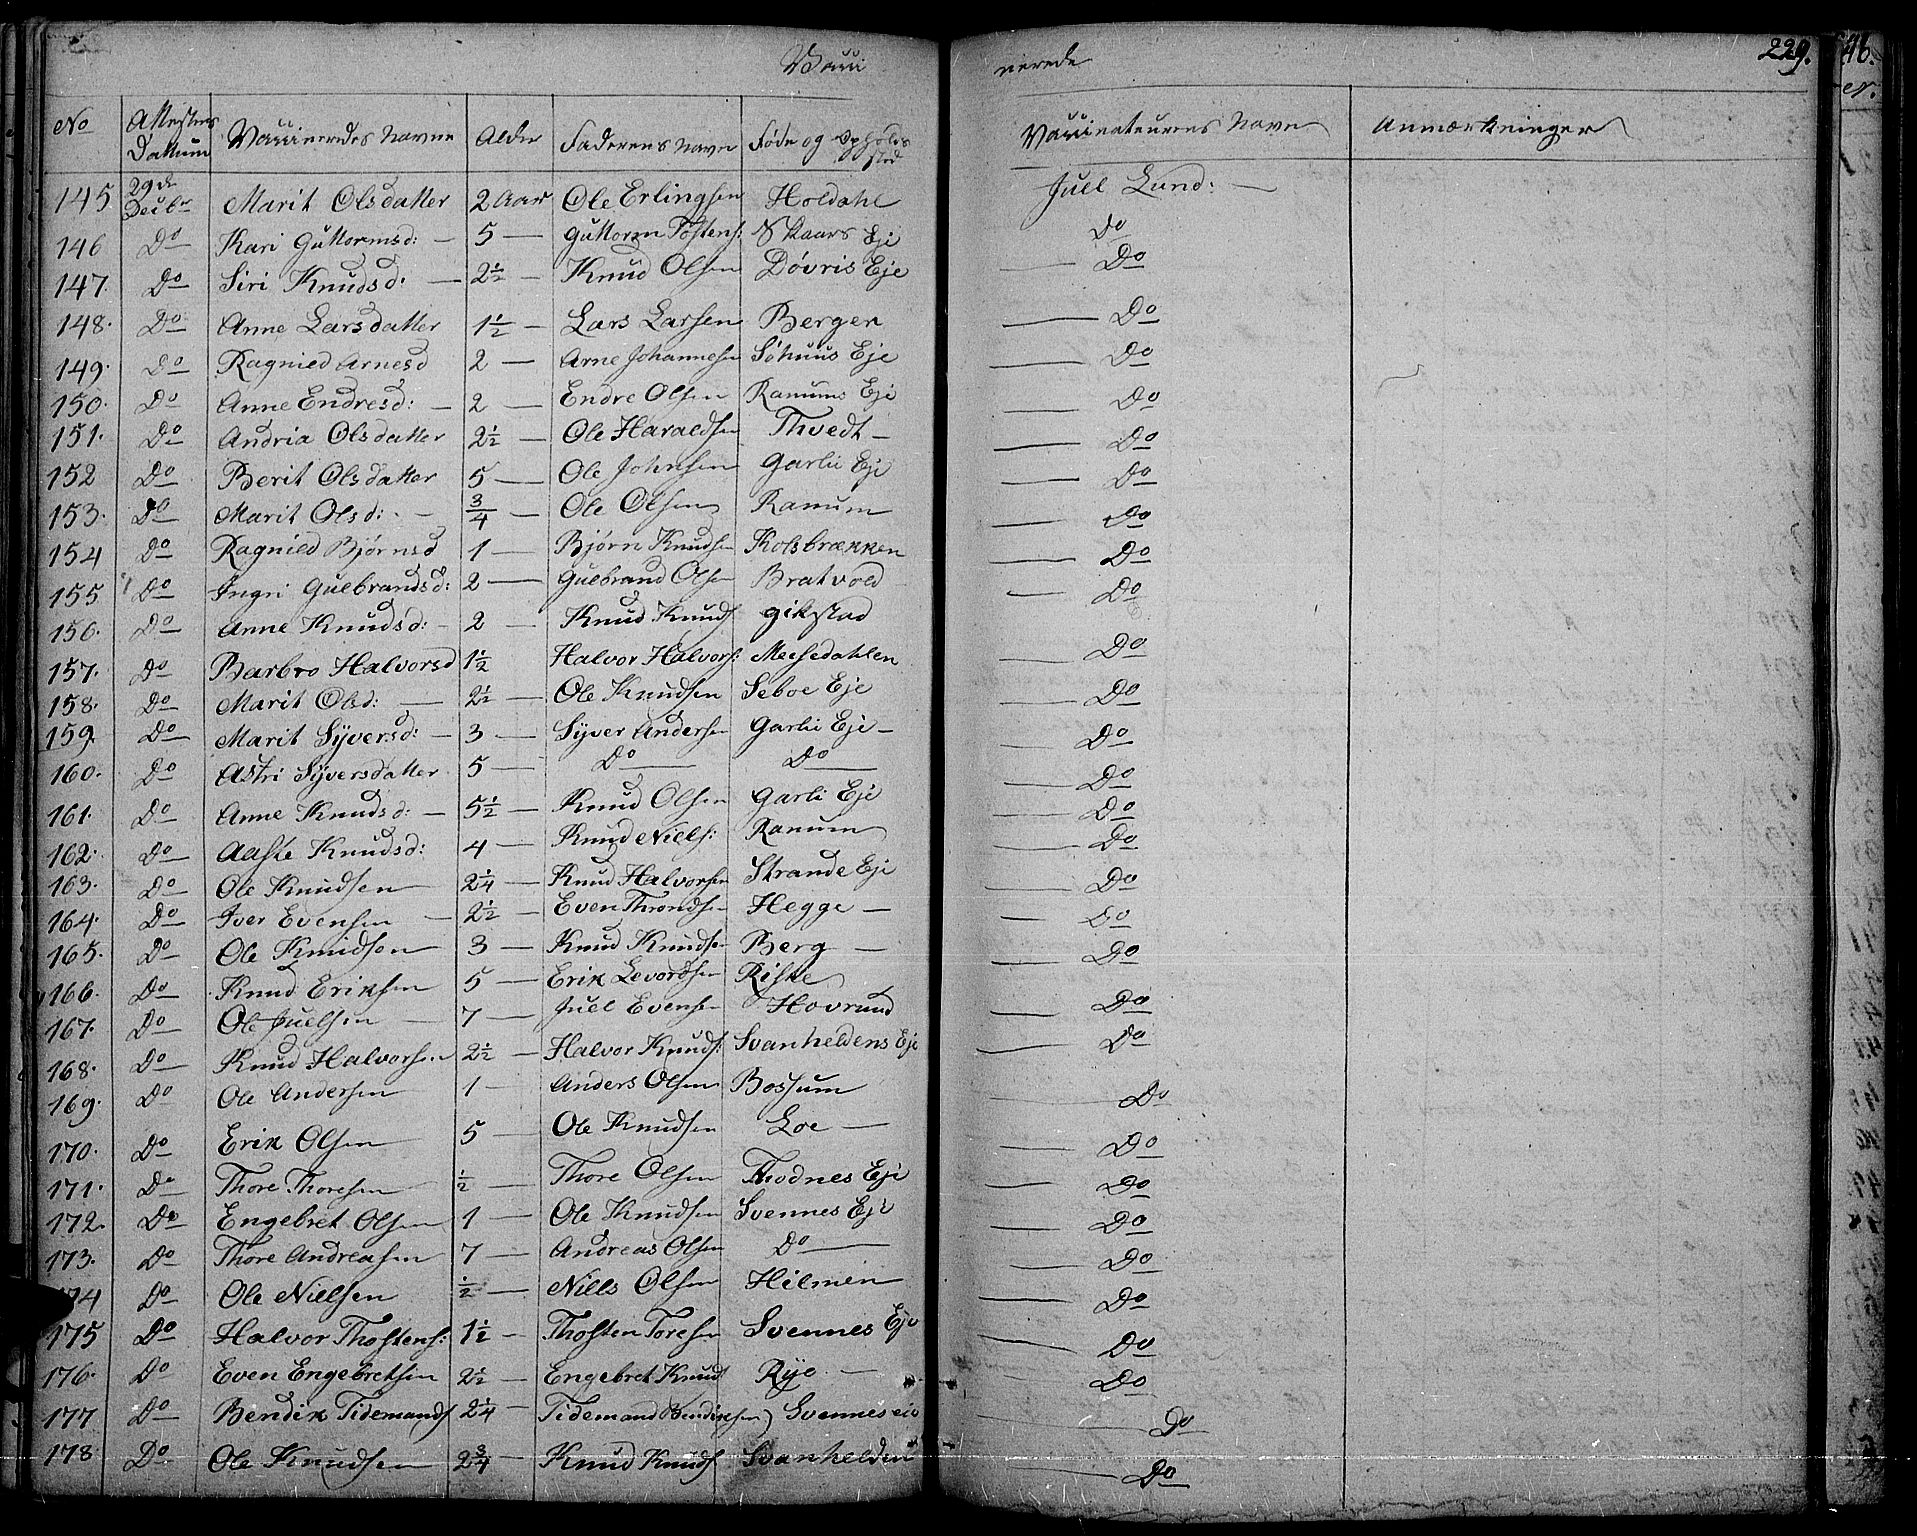 Vacci
nerede
229.
No Attestens Datum Vaccineredes Navne Alder Faderens Navn Føde og Opholds sted Vaccinateurens Navn Anmærkninger
145 29de Decbr Marit Olsdatter 2 Aar Ole Erlingsen Holdahl Juell Lund: —
146 Do Kari Guttormsd: — 5 — Guttorm Tostens: Skaars Eje Do
147. Do Siri Knudsd: — 2½ — Knud Olsen Døvris Eje — Do
148. Do Anne Larsdatter 1½ — Lars Larsen Bergen — Do
149. Do Ragnied Arnesd 2 — Arne Johannesen Eje — Do
150. Do Anne Endresd: — 2 — Endre Olsen Ranums Eje — Do
151. Do Andria Olsdatter 2½ — Ole Haraldsen Thvedt — — Do
152 Do Berit Olsdatter 5 — Ole Johnsen Garlie Eje — Do
153. Do Marit Olsd: — ¾ — Ole Olsen Ranum — Do
154 Do Ragnied Bjørnsd 1 — Bjørn Knudsen Kolsbrækken — Do
155 Do Ingri Gulbrandsd: 2 — Gulbrand Olsen Bratvold — Do
156. Do Anne Knudsd: — 2 — Knud Knuds Gikstad
157. Do Barbro Halvorsd 1½ Halvor Halvors: Meesedahlen — Do
158. Do Marit Olsd: — 2½ — Ole Knudsen Seboe Eje — Do
159. Do Marit Syversd: — 3 — Syver Andersen Garlie Eje — — Do
160. Do Astri Syversdatter 5 — Do — Do — — Do
161. Do Anne Knudsd: — 5½ — Knud Olsen Garli Eje — Do
162. Do Aaste Knudsd: 4 — Knud Niels: Ranum — Do
163. Do Ole Knudsen 2¼ — Knud Halvorsen Strande Eje — Do
164. Do Iver Evensen — 2½ — Even Throndsen Hegge — — Do
165. Do Ole Knudsen 3 — Knud Knudsen Berg — — Do
166. Do Knud Eriksen 5 — Erik Levordsen Riske — Do
167. Do Ole Juelsen — 7 — Juel Evensen Hovrund — Do
168. Do Knud Halvorsen 2½ — Halvor Knuds: Svanheldens Eje
169. Do Ole Andersen 1 — Anders Olsen Bossum — Do
170. Do Erik Olsen 5 — Ole Knudsen Loe — — Do
171. Do Thore Thoresen ½ — Thore Olsen Eje — Do
172. Do Engebret Olsen 1 — Ole Knudsen Svennes Eje — Do
173. Do Thore Andreasen 7 — Andreas Olsen Do — — Do
174 Do Ole Nielsen ½ — Niels Olsen Hilmen — Do
175 Do Halvor Thostens: 1½ — Thosten Toresen Svennes Eje — Do
176. Do Even Engebretsen 2½ — Engebret Knud Rye — — Do
177 Do Bendik Tidemands 2¼ — Tidemand Bendiksen Svennes eie — Do
178 Do Ole Knudsen 2¾ — Knud Knuds Svanhelden — Do